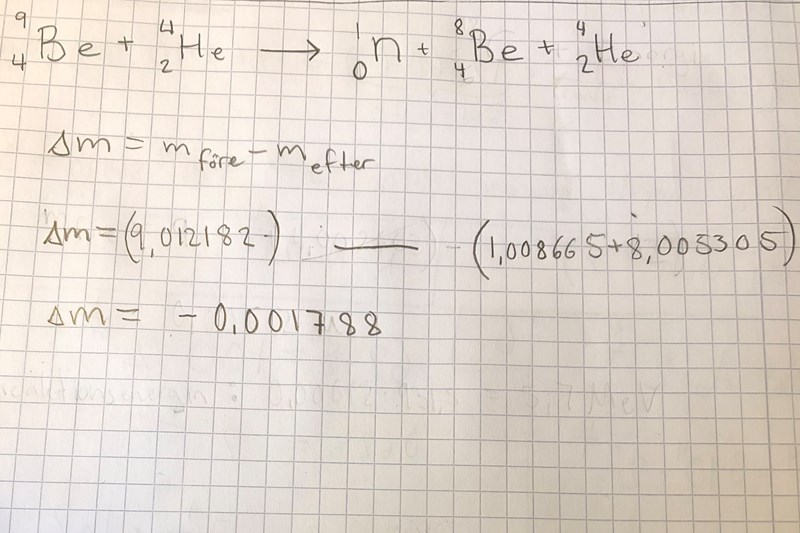 ⁹₄Be + ⁴₂He → ¹₀n + ⁸₄Be + ⁴₂He
Δm = m före - m efter
Δm = (9,012182) — (1,008665+8,005305)
Δm = - 0,001788
: = 5,7 MeV